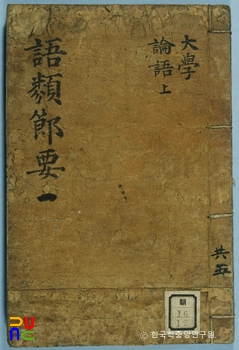 大學
論語 上
語類節要 一
共五
朝
© 한국학중앙연구원